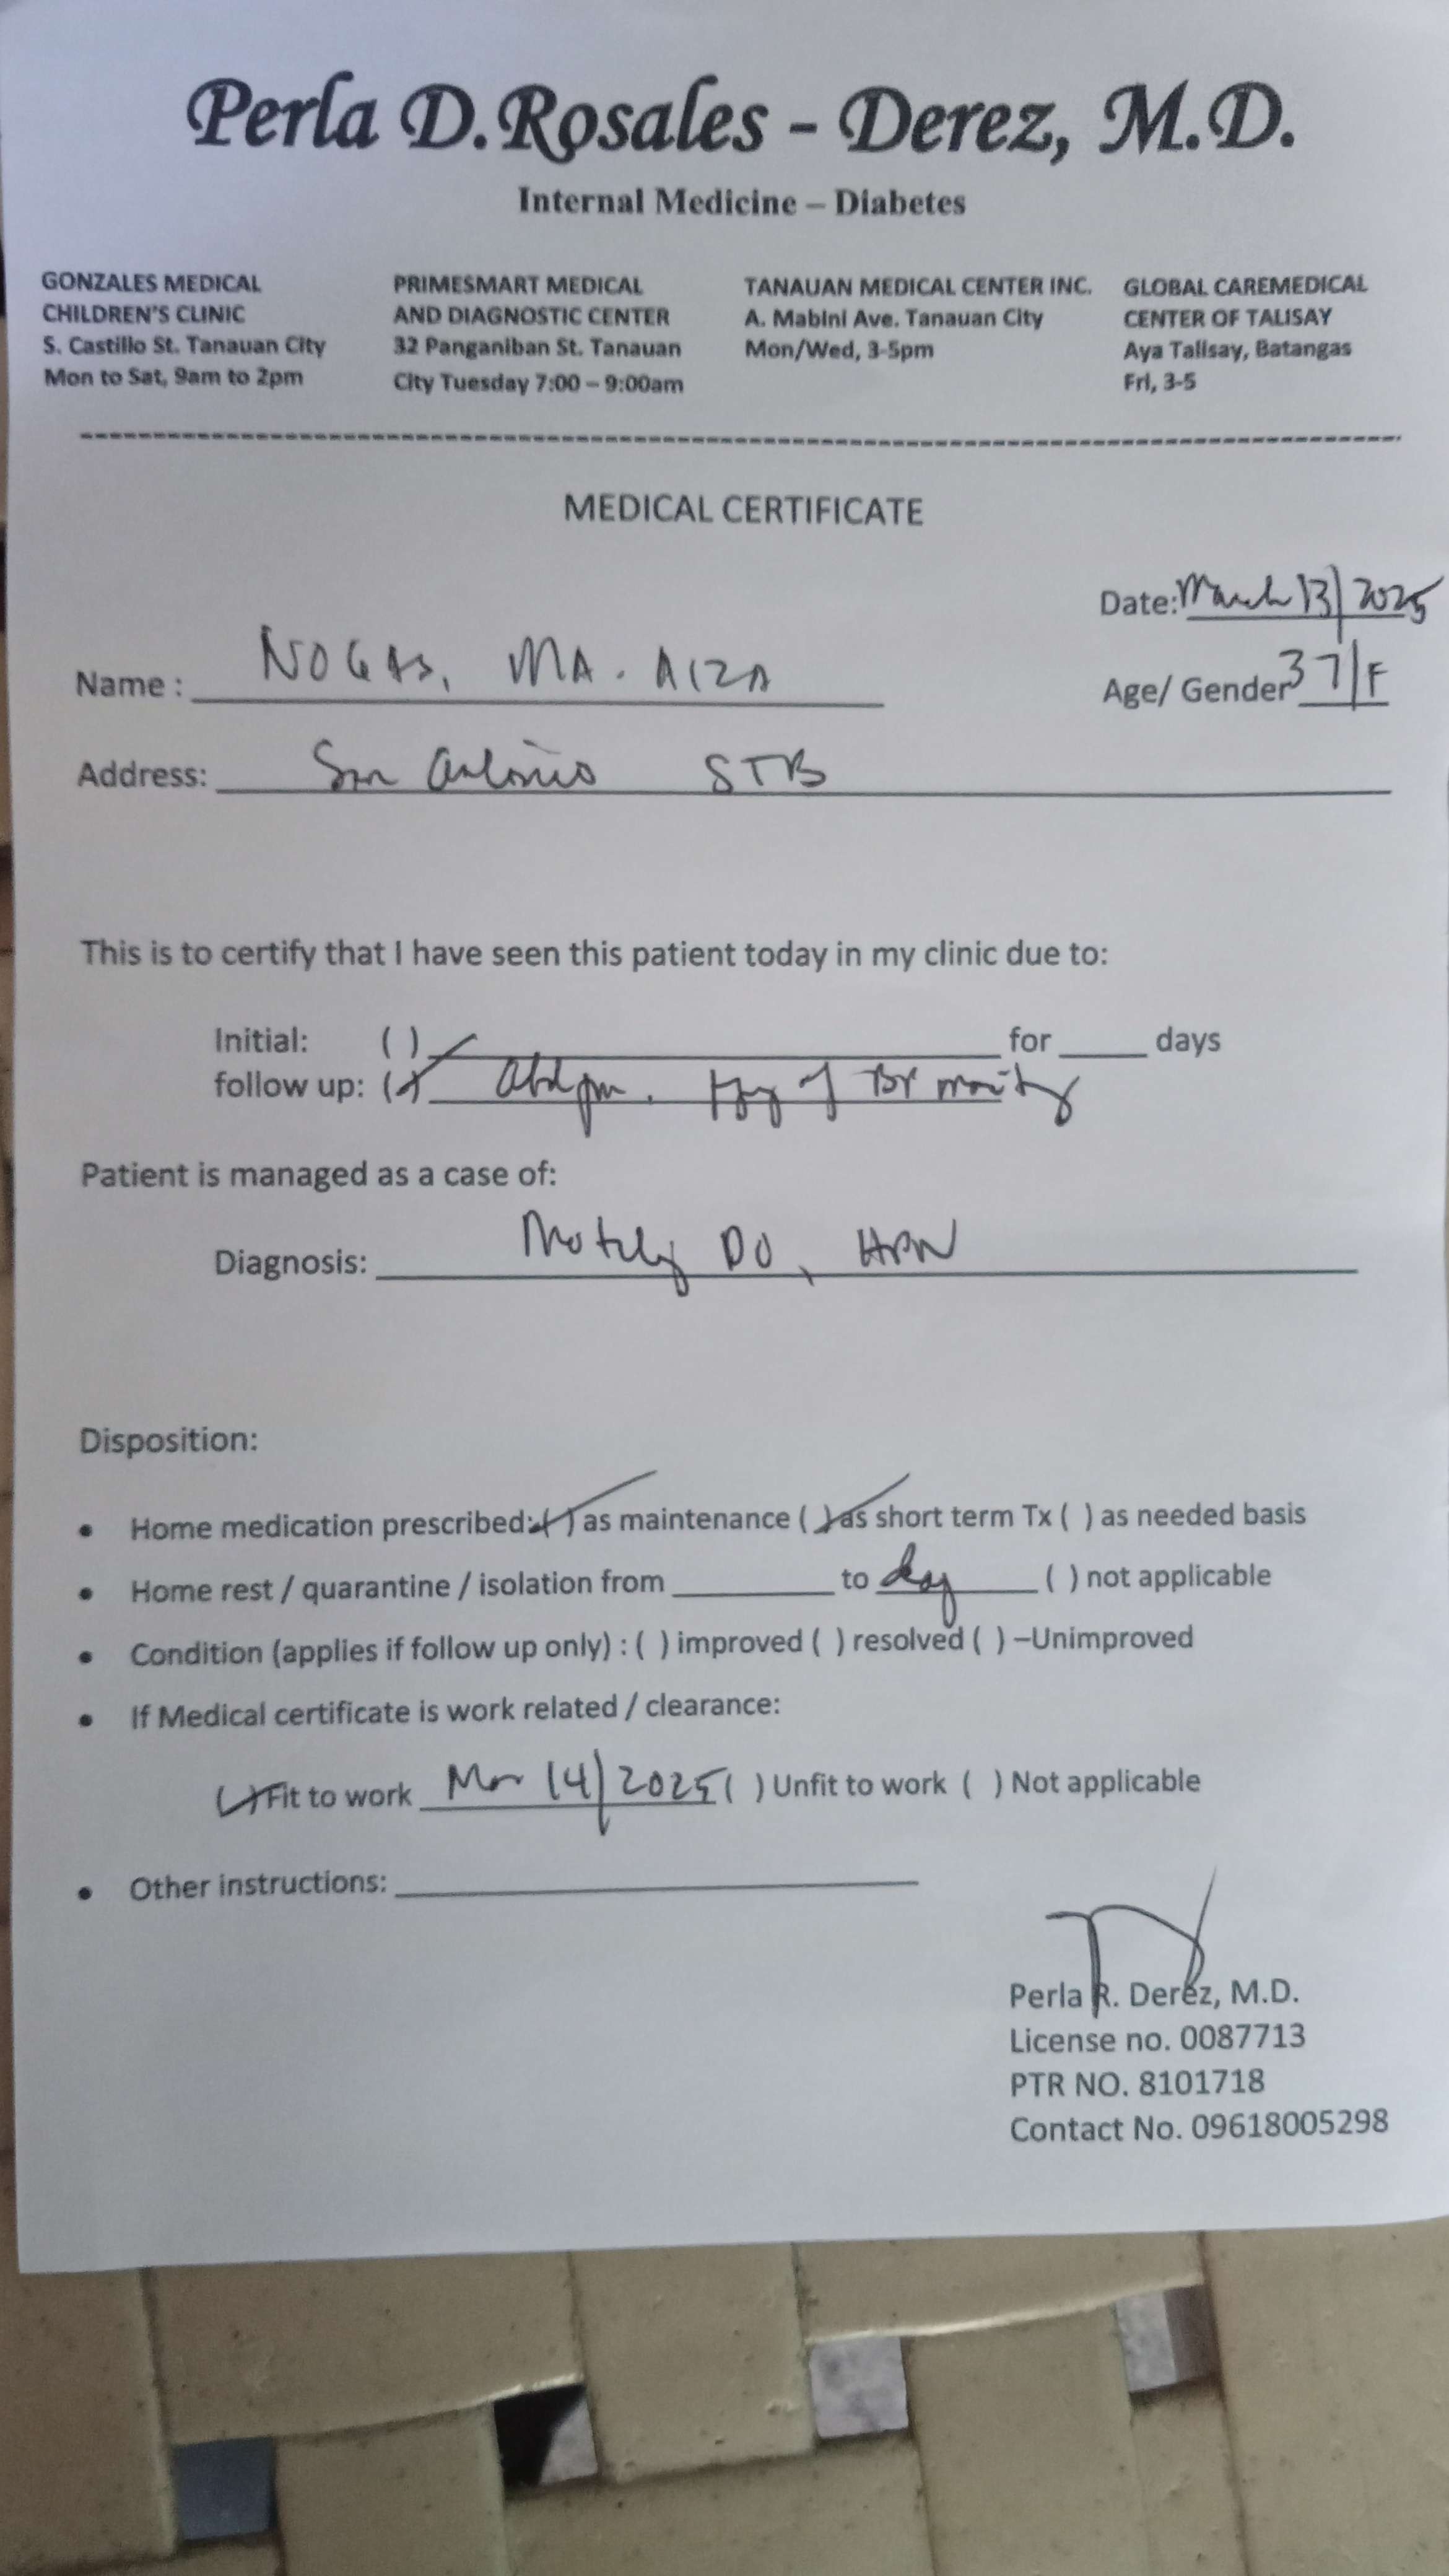 Perla D. Rosales - Derez, M.D.
Internal Medicine – Diabetes
GONZALES MEDICAL
CHILDREN'S CLINIC
S. Castillo St. Tanauan City
Mon to Sat, 9am to 2pm
PRIMESMART MEDICAL
AND DIAGNOSTIC CENTER
32 Panganiban St. Tanauan
City Tuesday 7:00 – 9:00am
TANAUAN MEDICAL CENTER INC.
A. Mabini Ave. Tanauan City
Mon/Wed, 3-5pm
GLOBAL CAREMEDICAL
CENTER OF TALISAY
Aya Talisay, Batangas
Fri, 3-5
MEDICAL CERTIFICATE
Date: March 13/2025
Name : NOGAS, MA. AIZA
Age/ Gender 37/F
Address: San Antonio STB
This is to certify that I have seen this patient today in my clinic due to:
Initial: ( ) for days
follow up: (✓)
Patient is managed as a case of:
Diagnosis: DO, HPN
Disposition:
• Home medication prescribed: (✓) as maintenance (✓) as short term Tx ( ) as needed basis
• Home rest / quarantine / isolation from to ( ) not applicable
• Condition (applies if follow up only) : ( ) improved ( ) resolved ( ) –Unimproved
• If Medical certificate is work related / clearance:
(✓) Fit to work Mar 14/2025 ( ) Unfit to work ( ) Not applicable
• Other instructions:
Perla R. Derez, M.D.
License no. 0087713
PTR NO. 8101718
Contact No. 09618005298